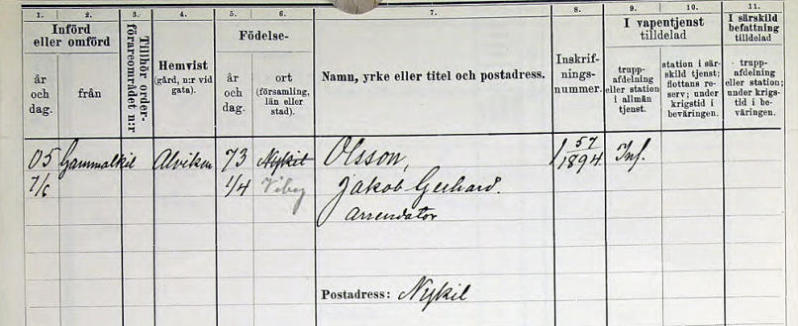 1. 2. 3. 4. 5. 6. 7. 8. 9. 10. 11.
Införd eller omförd
Tillhör order-
förareområdet n:r
Hemvist
(gård, n:r vid
gata).
Födelse-
Namn, yrke eller titel och postadress.
Inskrif-
nings-
nummer.
I vapentjenst
tilldelad
I särskild
befattning
tilldelad
år
och
dag.
från
år
och
dag.
ort
(församling,
län eller
stad).
trupp-
afdelning
eller station
i allmän
tjenst.
station i sär-
skild tjenst;
flottans re-
serv; under
krigstid i
beväringen.
trupp-
afdelning
eller station;
under krigs-
tid i be-
väringen.
05 Gammalkil Alviken 73 Nykil Olsson, 57/1894. Inf.
1/4 Jakob Gerhard.
arrendator
Postadress: Nykil